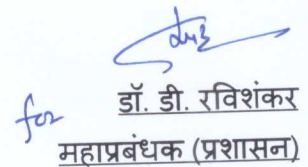 for
डॉ. डी. रविशंकर
महाप्रबंधक (प्रशासन)